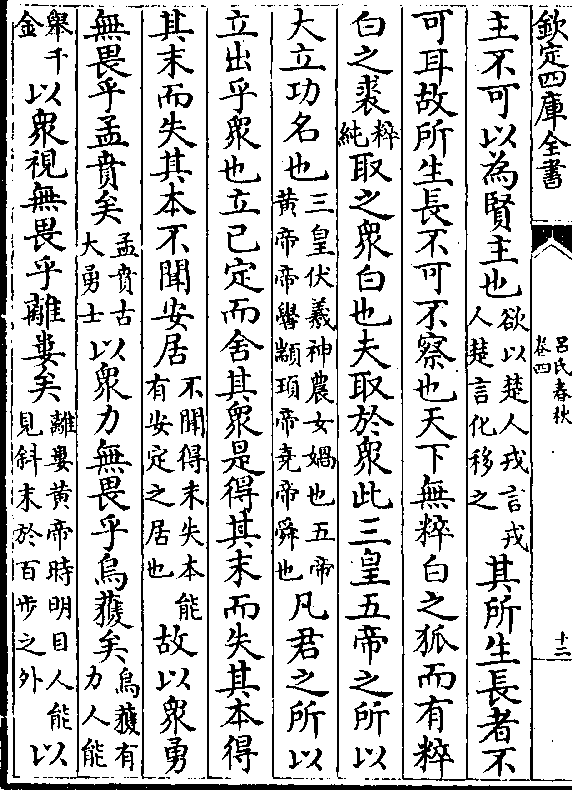 欽定四庫全書
呂氏春秋
卷四
十二
主不可以為賢主也欲以楚人戎言戎人楚言化移之其所生長者不
可耳故所生長不可不察也天下無粹白之狐而有粹
白之裘粹純取之衆白也夫取於衆此三皇五帝之所以
大立功名也三皇伏羲神農女媧也五帝黃帝帝嚳顓頊帝堯帝舜也凡君之所以
立出乎衆也立已定而舍其衆是得其末而失其本得
其末而失其本不聞安居不聞得末失本能有安定之居也故以衆勇
無畏乎孟賁矣孟賁古大勇士以衆力無畏乎烏獲矣烏獲有力人能
舉千金以衆視無畏乎離婁矣離婁黃帝時明目人能見斜末於百步之外以